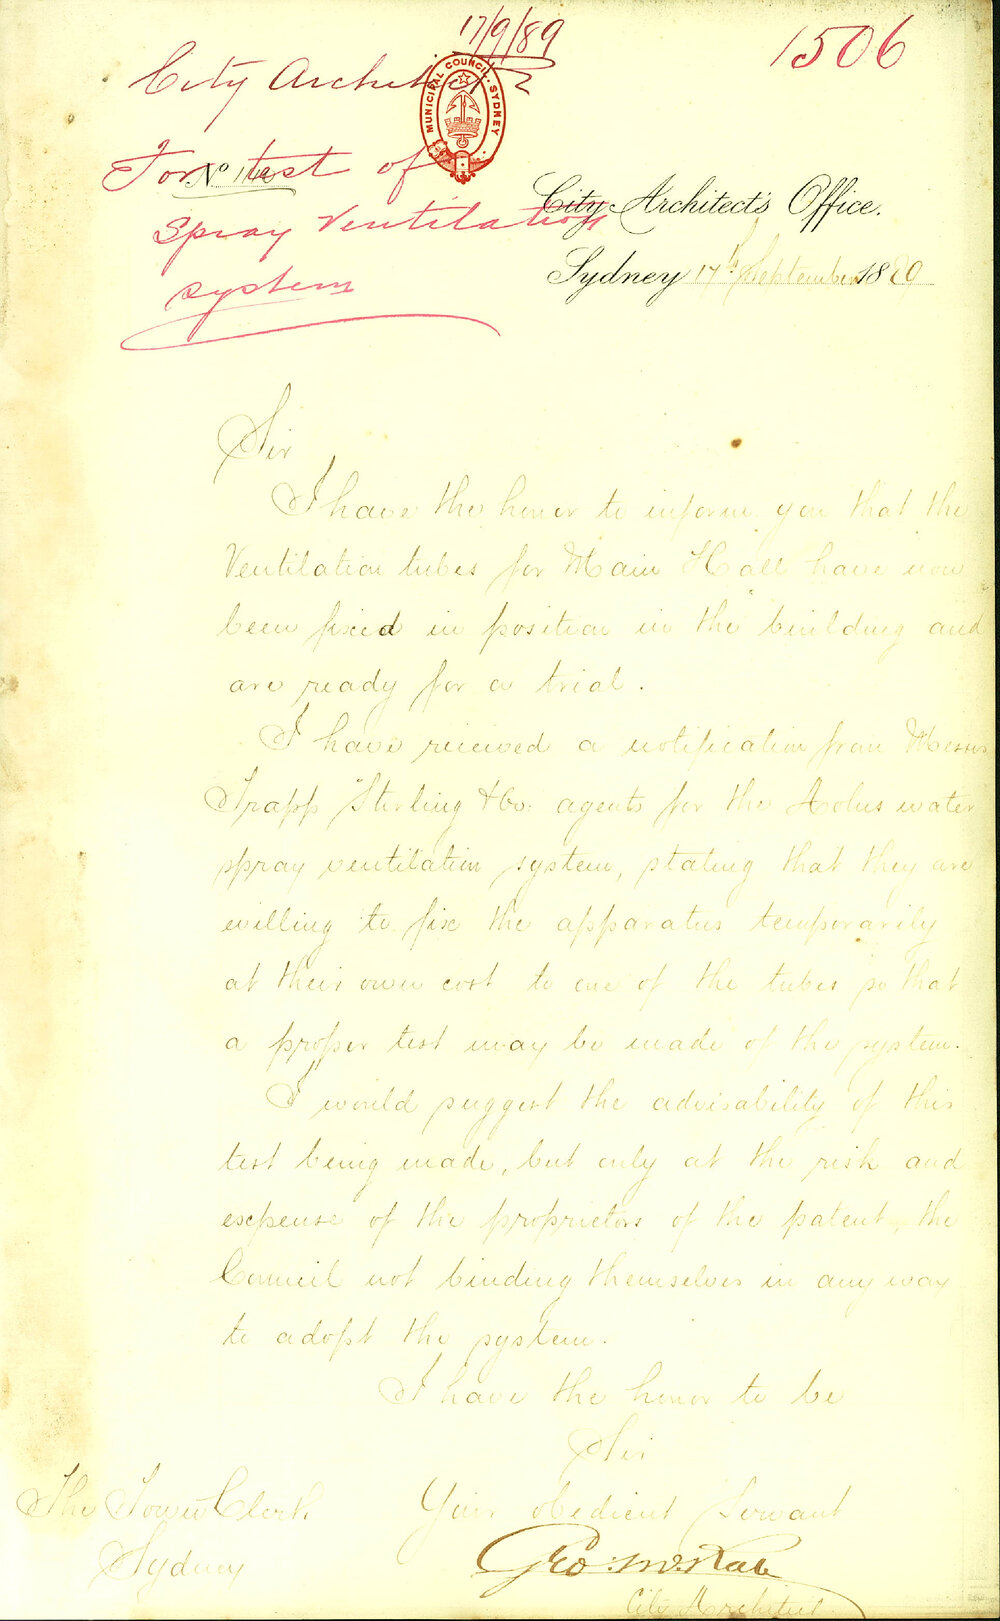 17/9/89
1506
City Architect
MUNICIPAL COUNCIL. SYDNEY
For test of
No
Spray Ventilation
system
City Architect's Office.
Sydney 17th September 1889
Sir
I have the honor to inform you that the
Ventilation tubes for Main Hall have now
been fixed in position in the building and
are ready for a trial.
I have received a notification from Messrs
Trapp Sterling & Co. agents for the Aolus water
spray ventilation system, stating that they are
willing to fix the apparatus temporarily
at their own cost to one of the tubes so that
a proper test may be made of the system.
I would suggest the advisability of this
test being made, but only at the risk and
expense of the proprietors of the patent, the
Council not binding themselves in any way
to adopt the system.
I have the honor to be
Sir
Your obedient Servant
Geo: McRae
City Architect
The Town Clerk
Sydney